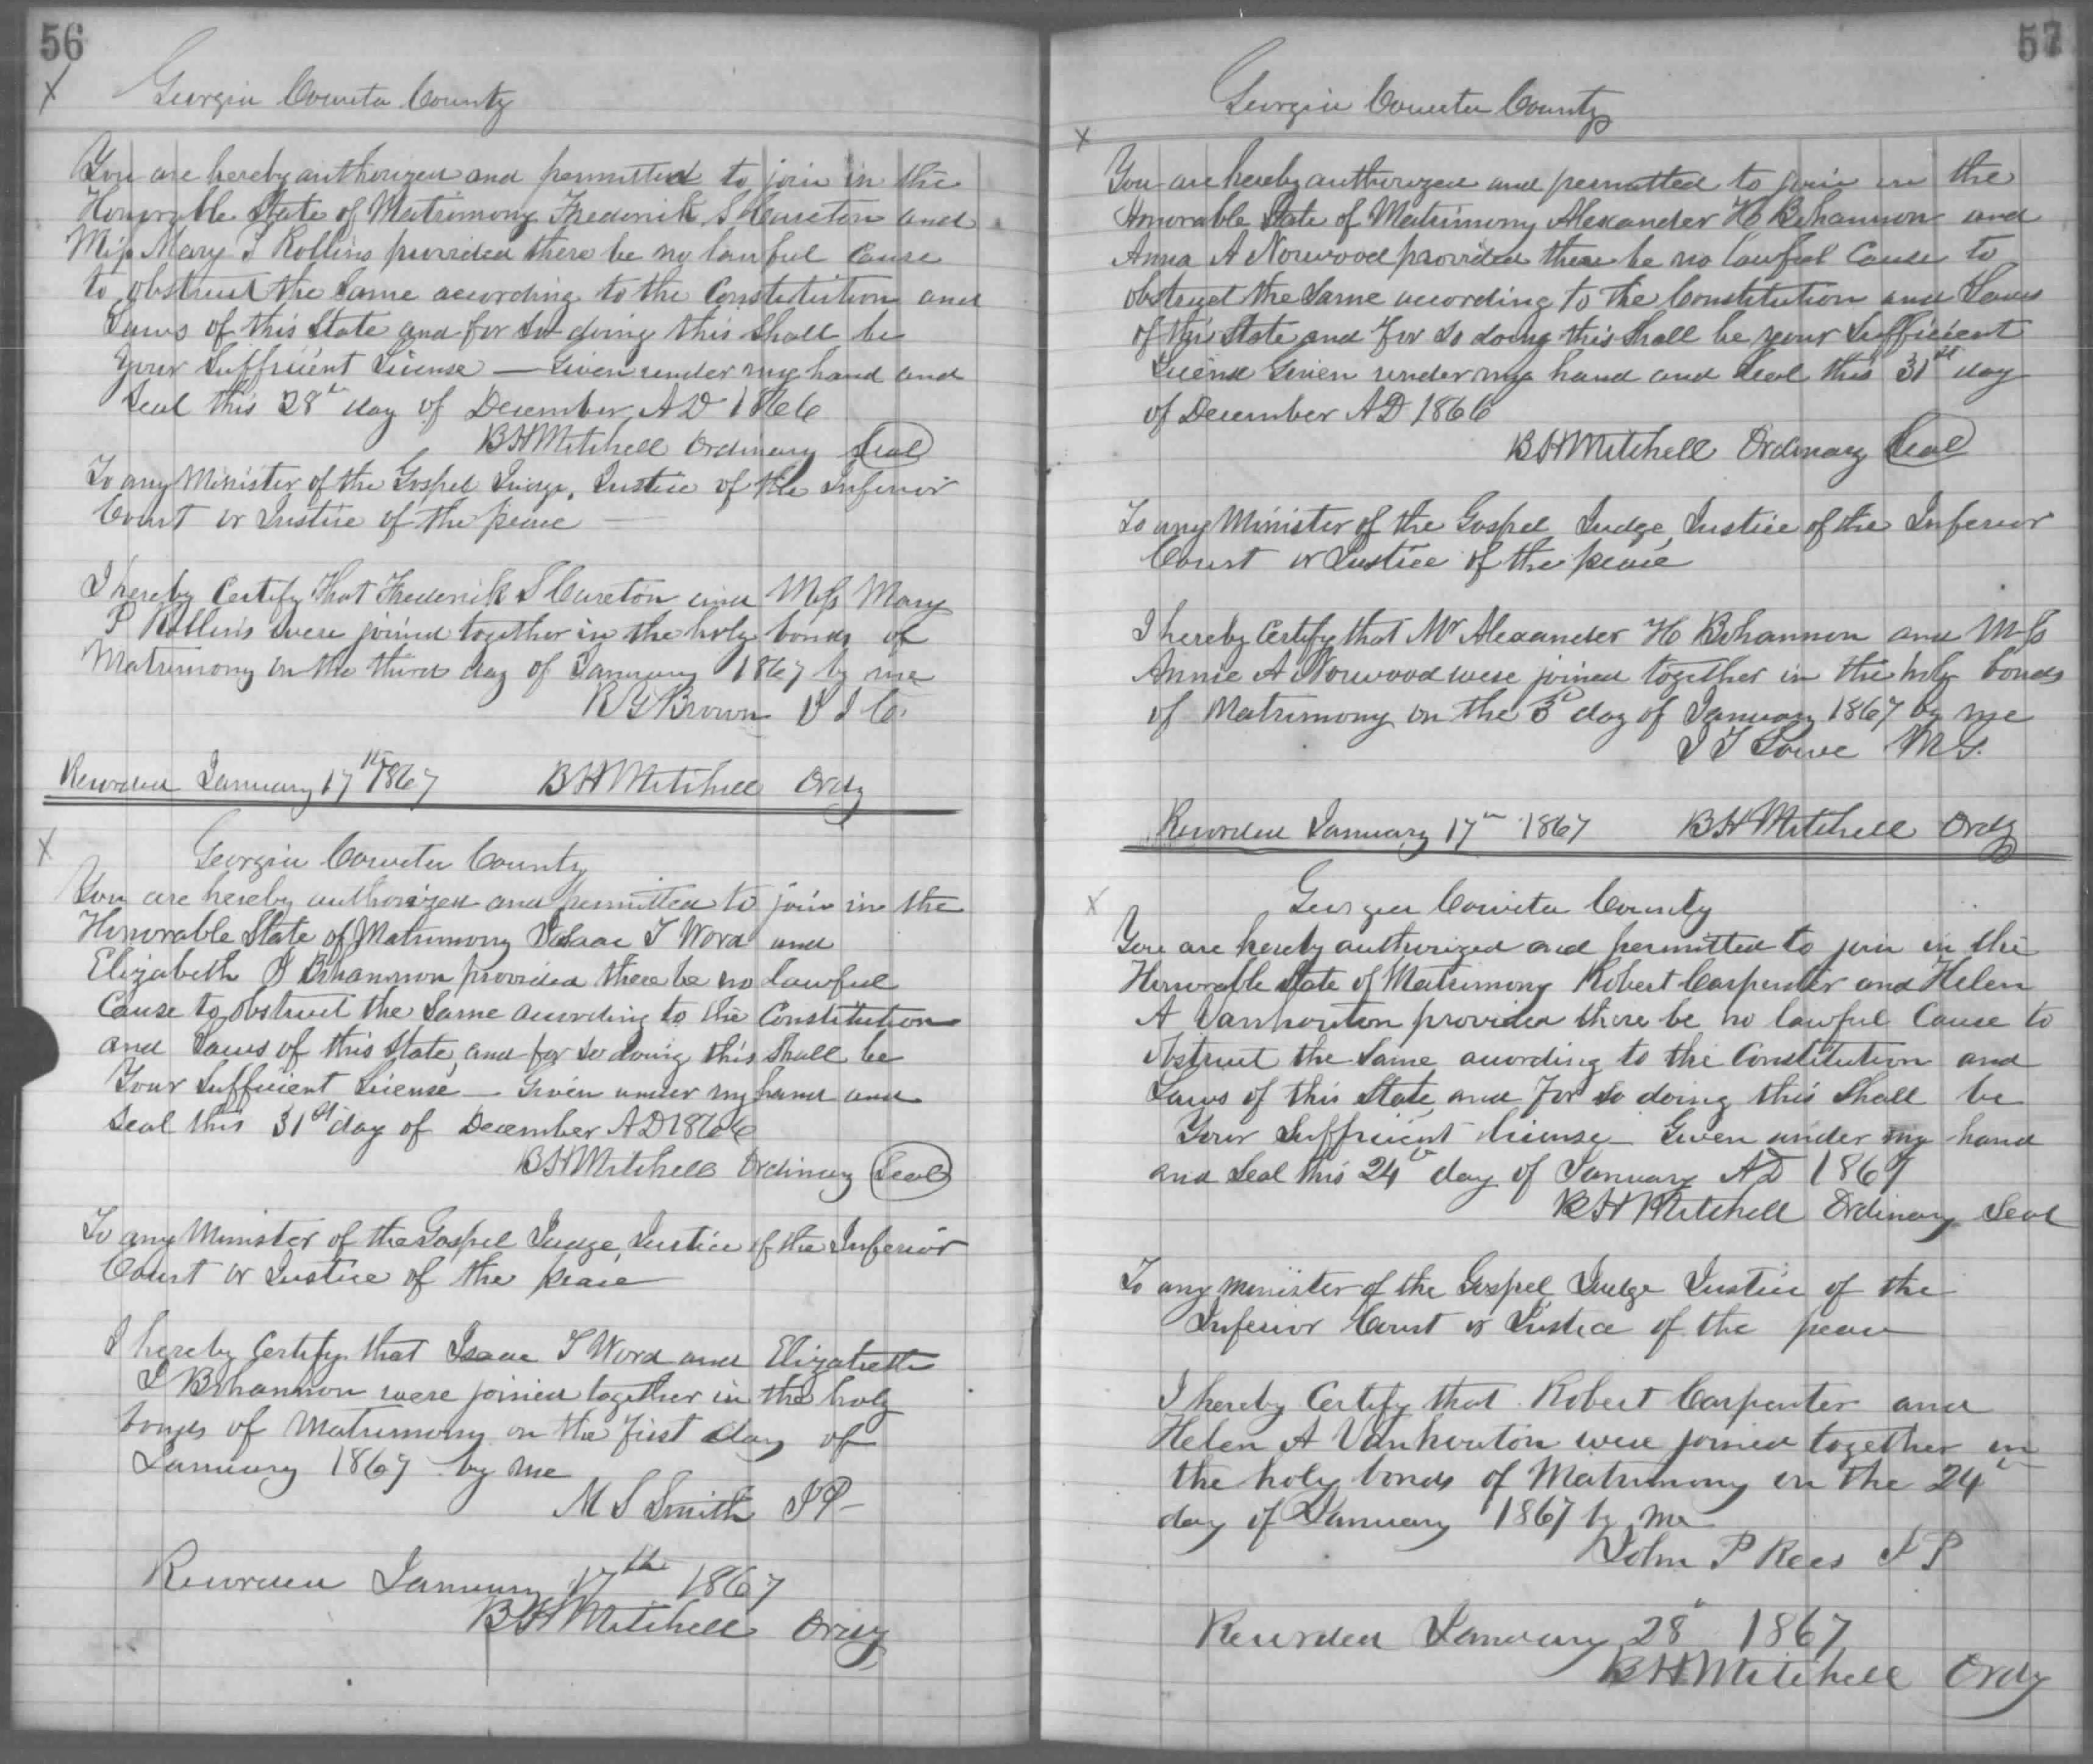 56
Georgia Coweta County
You are hereby authorized and permitted to join in the
Honorable State of Matrimony Frederick S Cureton and
Miss Mary P Rollins provided there be no lawful Cause
to obstruct the Same according to the Constitution and
Laws of this State and for So doing this Shall be
Your Sufficient License — Given under my hand and
Seal this 28th day of December AD 1866
BHMitchell Ordinary Seal
To any Minister of the Gospel Judge, Justice of the Inferior
Court or Justice of the peace
I hereby Certify That Frederick S Cureton and Miss Mary
P Rollins were joined together in the holy bonds of
Matrimony on the third day of January 1867 by me
B H Mitchell Ordy
Recorded January 17th 1867
Georgia Coweta County
You are hereby authorized and permitted to join in the
Honorable State of Matrimony Isaac T Word and
Elizabeth J Bohannon provided there be no Lawful
Cause to obstruct the Same according to the Constitution
and Laws of this State, and for So doing this Shall be
Your Sufficient License — Given under my hand and
Seal this 31st day of December AD 1866
BHMitchell Ordinary Seal
To any Minister of the Gospel Judge, Justice of the Inferior
Court or Justice of the peace
I hereby Certify that Isaac T Word and Elizabeth
J Bohannon were joined together in the holy
bonds of Matrimony on the first day of
January 1867 by me
M S Smith JP
Recorded January 17th 1867
BHMitchell Ordy
57
Georgia Coweta County
You are hereby authorized and permitted to join in the
Honorable State of Matrimony Alexander H Bohannon and
Anna A Norwood provided there be no lawful Cause to
obstruct the Same according to the Constitution and Laws
of this State and For So doing this Shall be your Sufficient
License Given under my hand and Seal this 31st day
of December AD 1866
BHMitchell Ordinary Seal
To any Minister of the Gospel Judge, Justice of the Inferior
Court or Justice of the peace
I hereby Certify that Mr Alexander H Bohannon and Miss
Annie A Norwood were joined together in the holy bonds
of Matrimony on the 3d day of January 1867 by me
Lowe M G.
Recorded January 17th 1867 BHMitchell Ordy
Georgia Coweta County
You are hereby authorized and permitted to join in the
Honorable State of Matrimony Robert Carpenter and Helen
A Vanhouton provided there be no lawful Cause to
obstruct the Same according to the Constitution and
Laws of this State and For So doing this Shall be
Your Sufficient License Given under my hand
and Seal this 24th day of January AD 1867
BHMitchell Ordinary Seal
To any minister of the Gospel Judge Justice of the
Inferior Court or Justice of the peace
I hereby Certify that Robert Carpenter and
Helen A Vanhouton were joined together in
the holy bonds of Matrimony on the 24th
day of January 1867 by me
John P Rees J P
Recorded January 28th 1867
BHMitchell Ordy